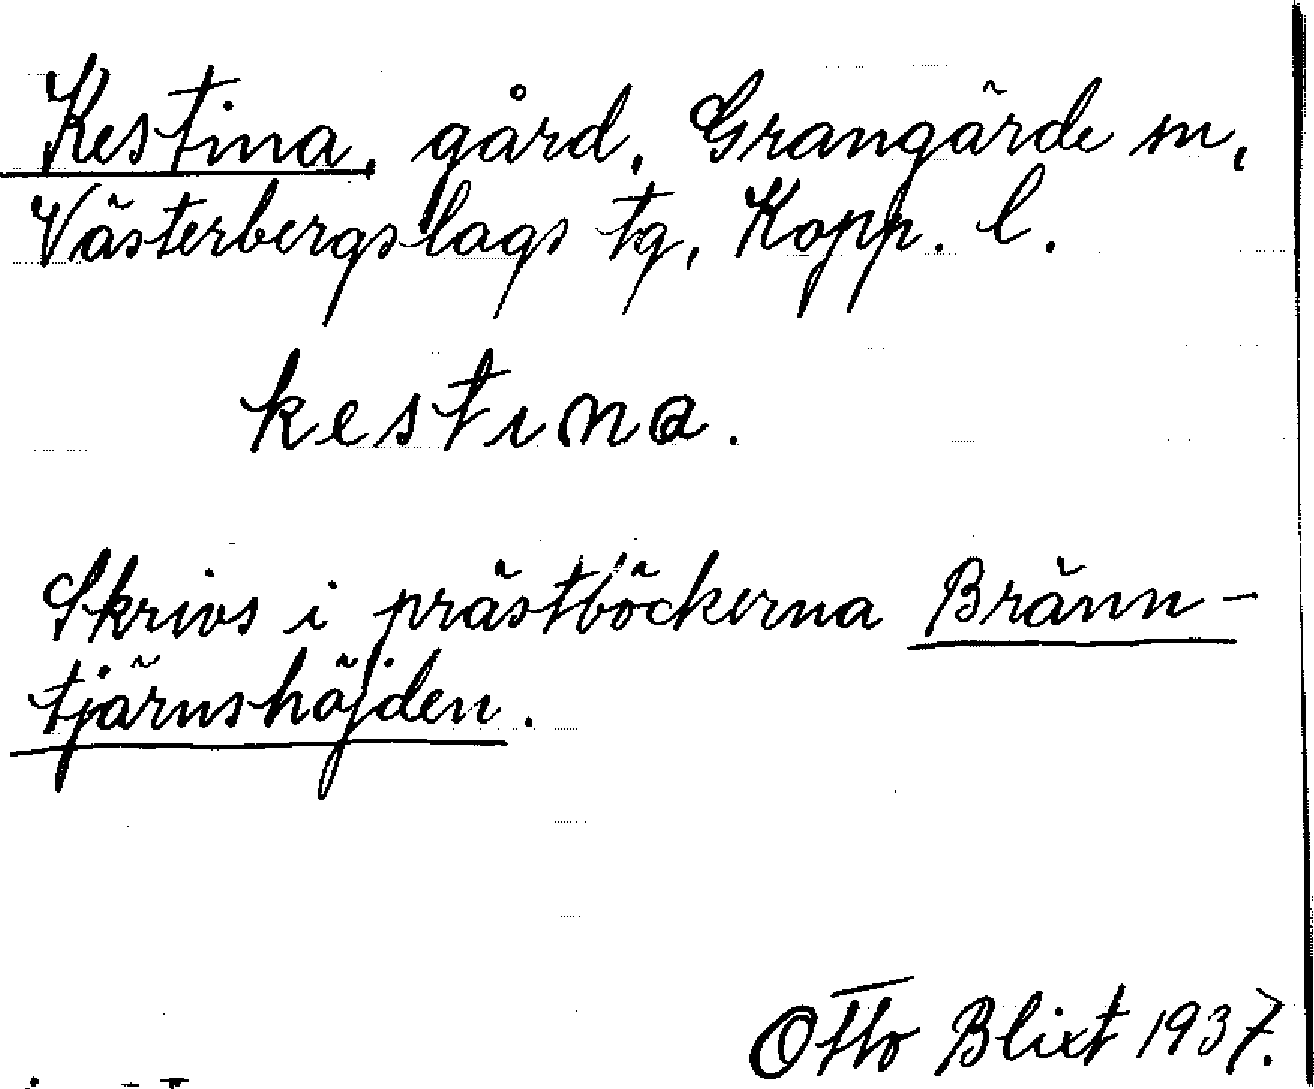 Kestina, gård, Grangärde sn,
Västerbergslags tg, Kopp. l.
kestına.
Skrivs i prästböckerna Bränn-
tjärnshöjden.
Otto Blixt 1937.